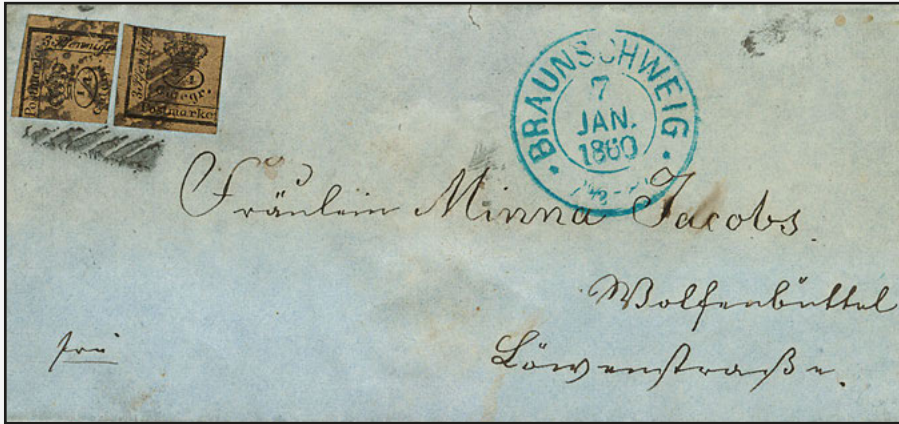 3 Pfennige
Postmarke
1/4
3 Pfennige
1/4
Postmarke
BRAUNSCHWEIG
7
JAN.
1860
Fräulein Minna Jacobs.
Wolfenbüttel
Löwenstraße.
frei